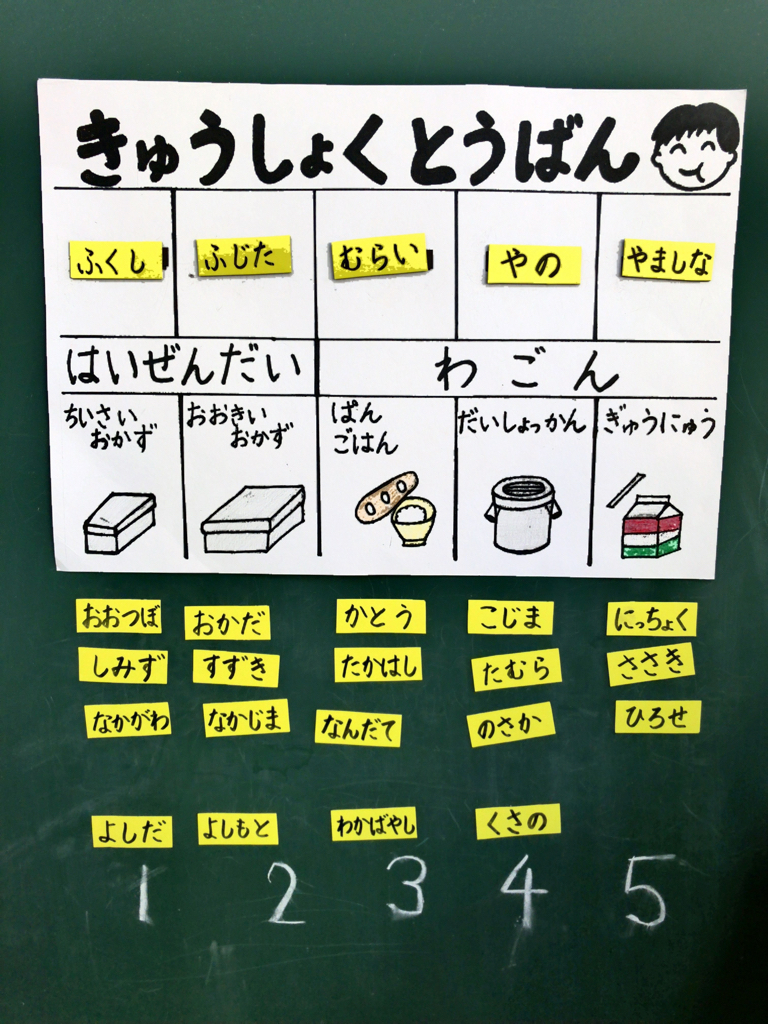 きゅうしょくとうばん
ふくし ふじた むらい やの やましな
はいぜんだい わごん
ちいさい おかず
おおきい おかず
ぱん ごはん
だいしょっかん
ぎゅうにゅう
おおつぼ おかだ かとう こじま にっちょく
しみず すずき たかはし たむら ささき
なかがわ なかじま なんだて のさか ひろせ
よしだ よしもと わかばやし くさの
1 2 3 4 5